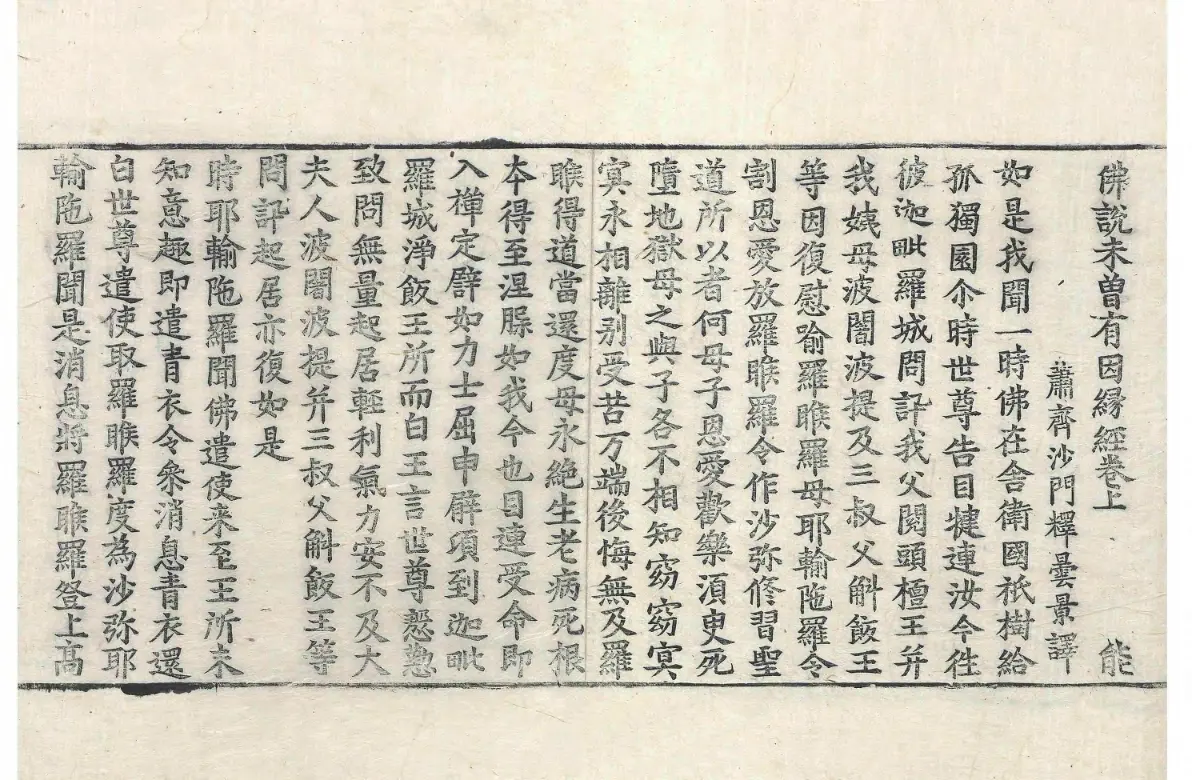 佛說未曾有因縁經卷上 能
蕭齊沙門釋曇景譯
如是我聞一時佛在舍衛國祇樹給
孤獨園尒時世尊告目犍連汝今徃
彼迦毗羅城問訊我父閱頭檀王并
我姨母波闍波提及三叔父斛飯王
等因復慰喻羅睺羅母耶輸陁羅令
割恩愛放羅睺羅令作沙弥修習聖
道所以者何母子恩愛歡樂湏㬰死
墮地獄母之與子各不相知窈窈㝠
㝠永相離别受苦万端後悔無及羅
睺得道當還度母永絶生老病死根
夲得至涅腺如我今也目連受命即
入禪定譬如力士屈申臂項到迦毗
羅城淨飯王所而白王言世尊慇懃
致問無量起居輕利氣力安不及大
夫人波闍波提并三叔父斛飯王等
問訊起居亦復如是
時耶輸陁羅聞佛遣使来至王所未
知意趣即遣青衣令叅消息青衣還
白世尊遣使取羅睺羅度為沙弥耶
輸陁羅聞是消息將羅睺羅登上髙